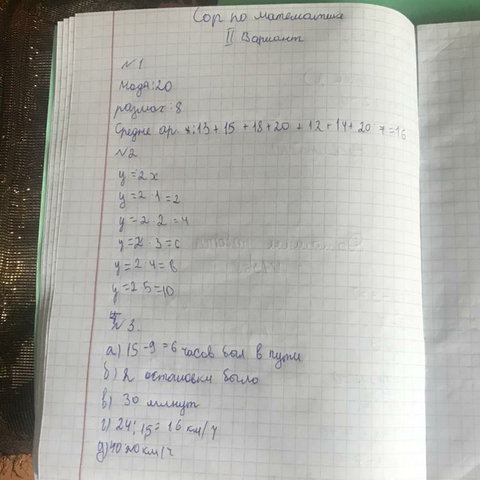 Сор по математике
II Вариант
№1
Мода: 20
размах: 8
Средне ар. : 13 + 15 + 18 + 20 + 12 + 14 + 20 7 = 16
№2
y = 2x
y = 2 · 1 = 2
y = 2 · 2 = 4
y = 2 · 3 = 6
y = 2 · 4 = 8
y = 2 · 5 = 10
№3.
а) 15 - 9 = 6 часов был в пути
б) 2 остановки было
в) 30 минут
г) 24 : 15 = 16 км/ч